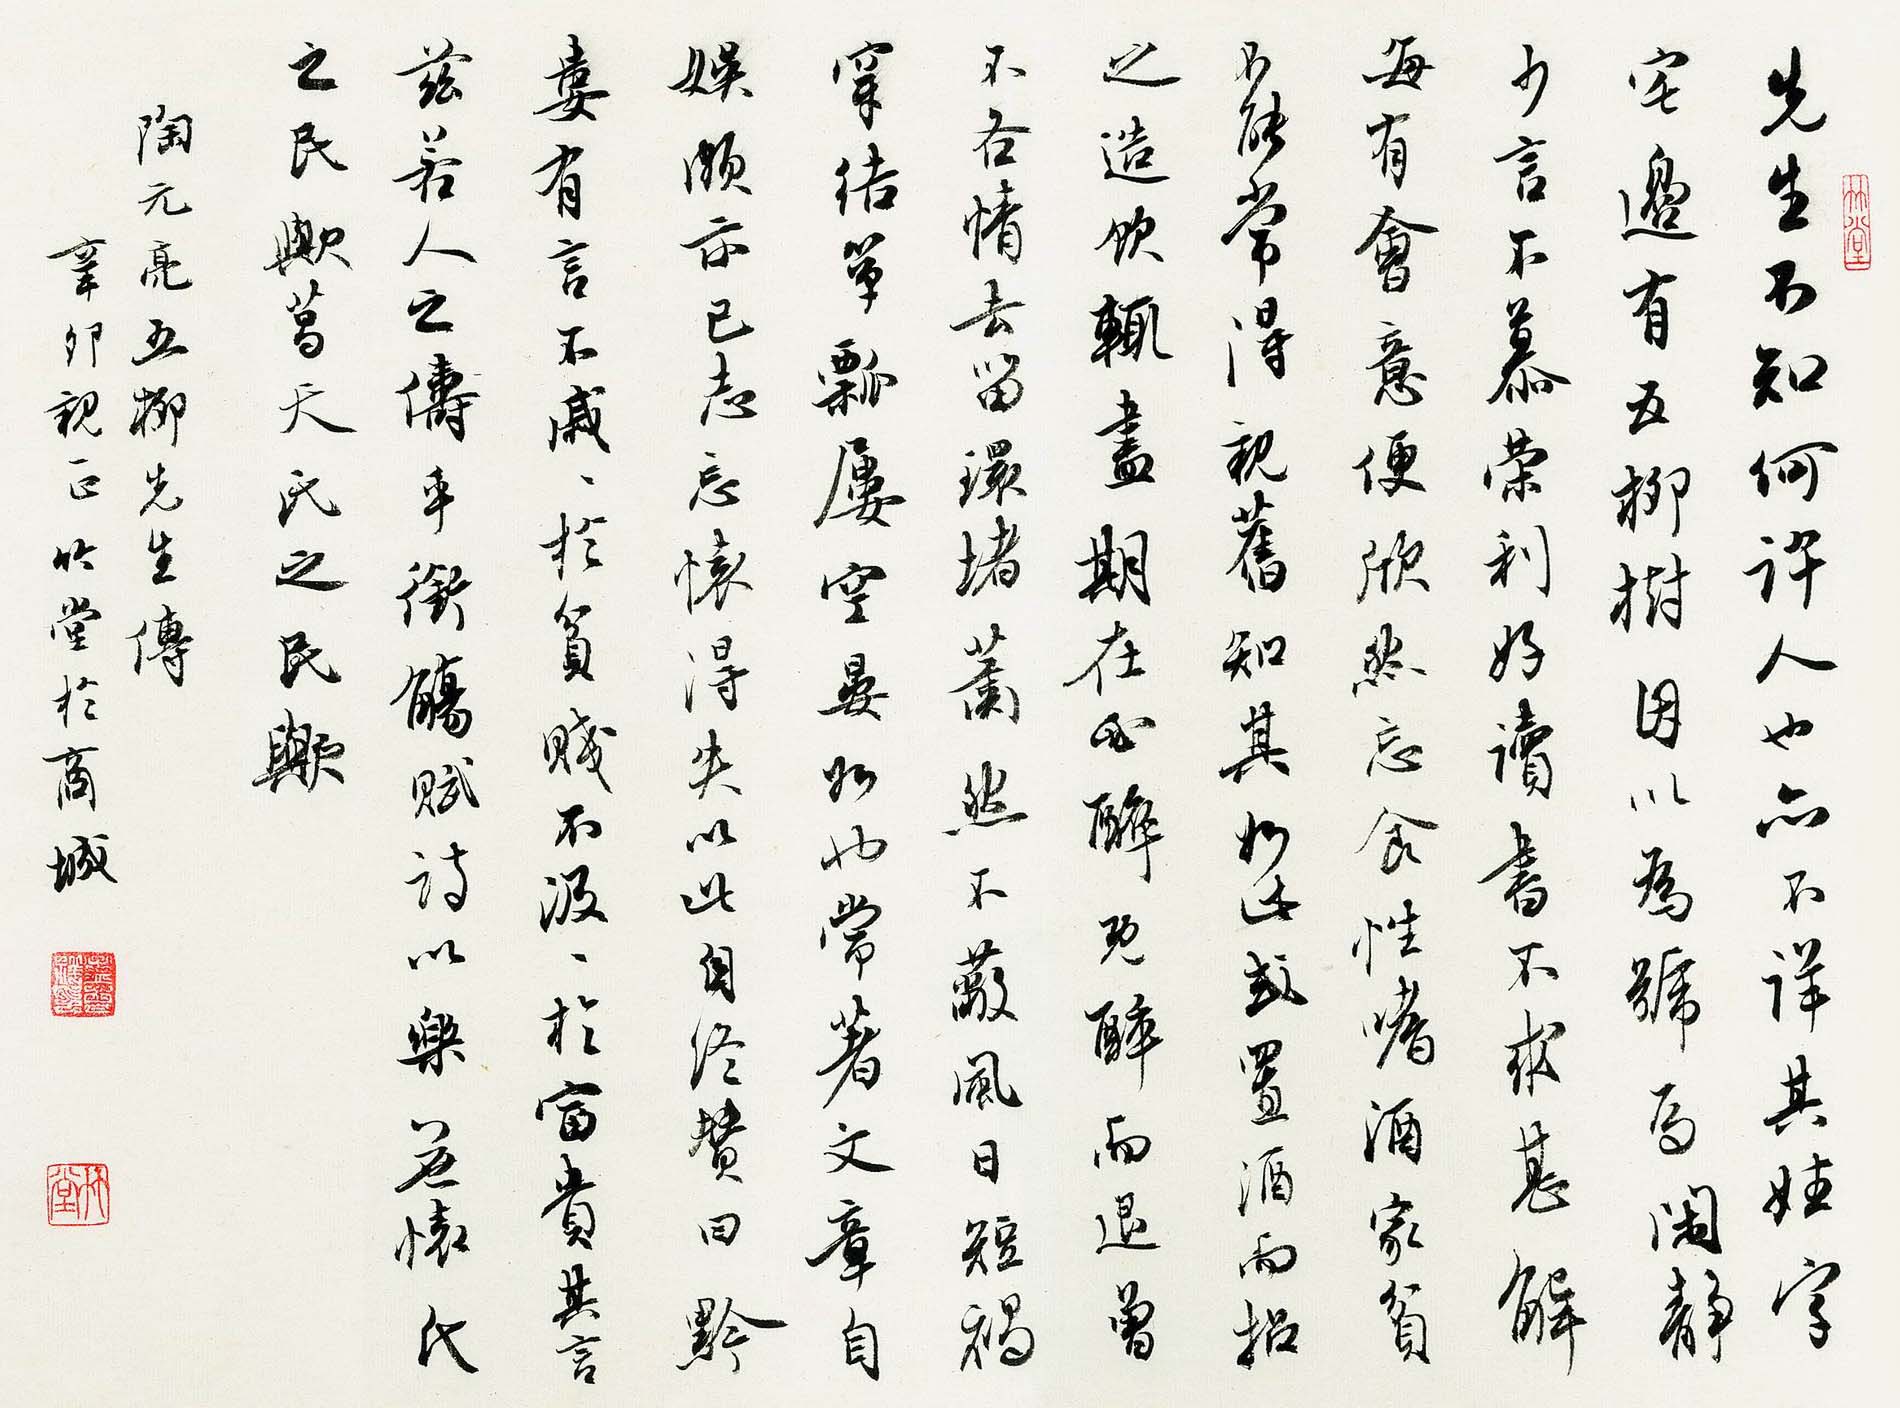 竹堂
先生不知何許人也亦不詳其姓字
宅邊有五柳樹因以為號焉閑靜
少言不慕榮利好讀書不求甚解
每有會意便欣然忘食性嗜酒家貧
不能常得親舊知其如此或置酒而招
之造飲輒盡期在必醉既醉而退曾
不吝情去留環堵蕭然不蔽風日短褐
穿結簞瓢屢空晏如也常著文章自
娛頗示己志忘懷得失以此自終贊曰黔
婁有言不戚、於貧賤不汲、於富貴其言
茲若人之儔乎銜觴賦詩以樂懷氏
之民歟葛天氏之民歟
陶元亮五柳先生傳
辛卯親正竹堂於商城
竹堂